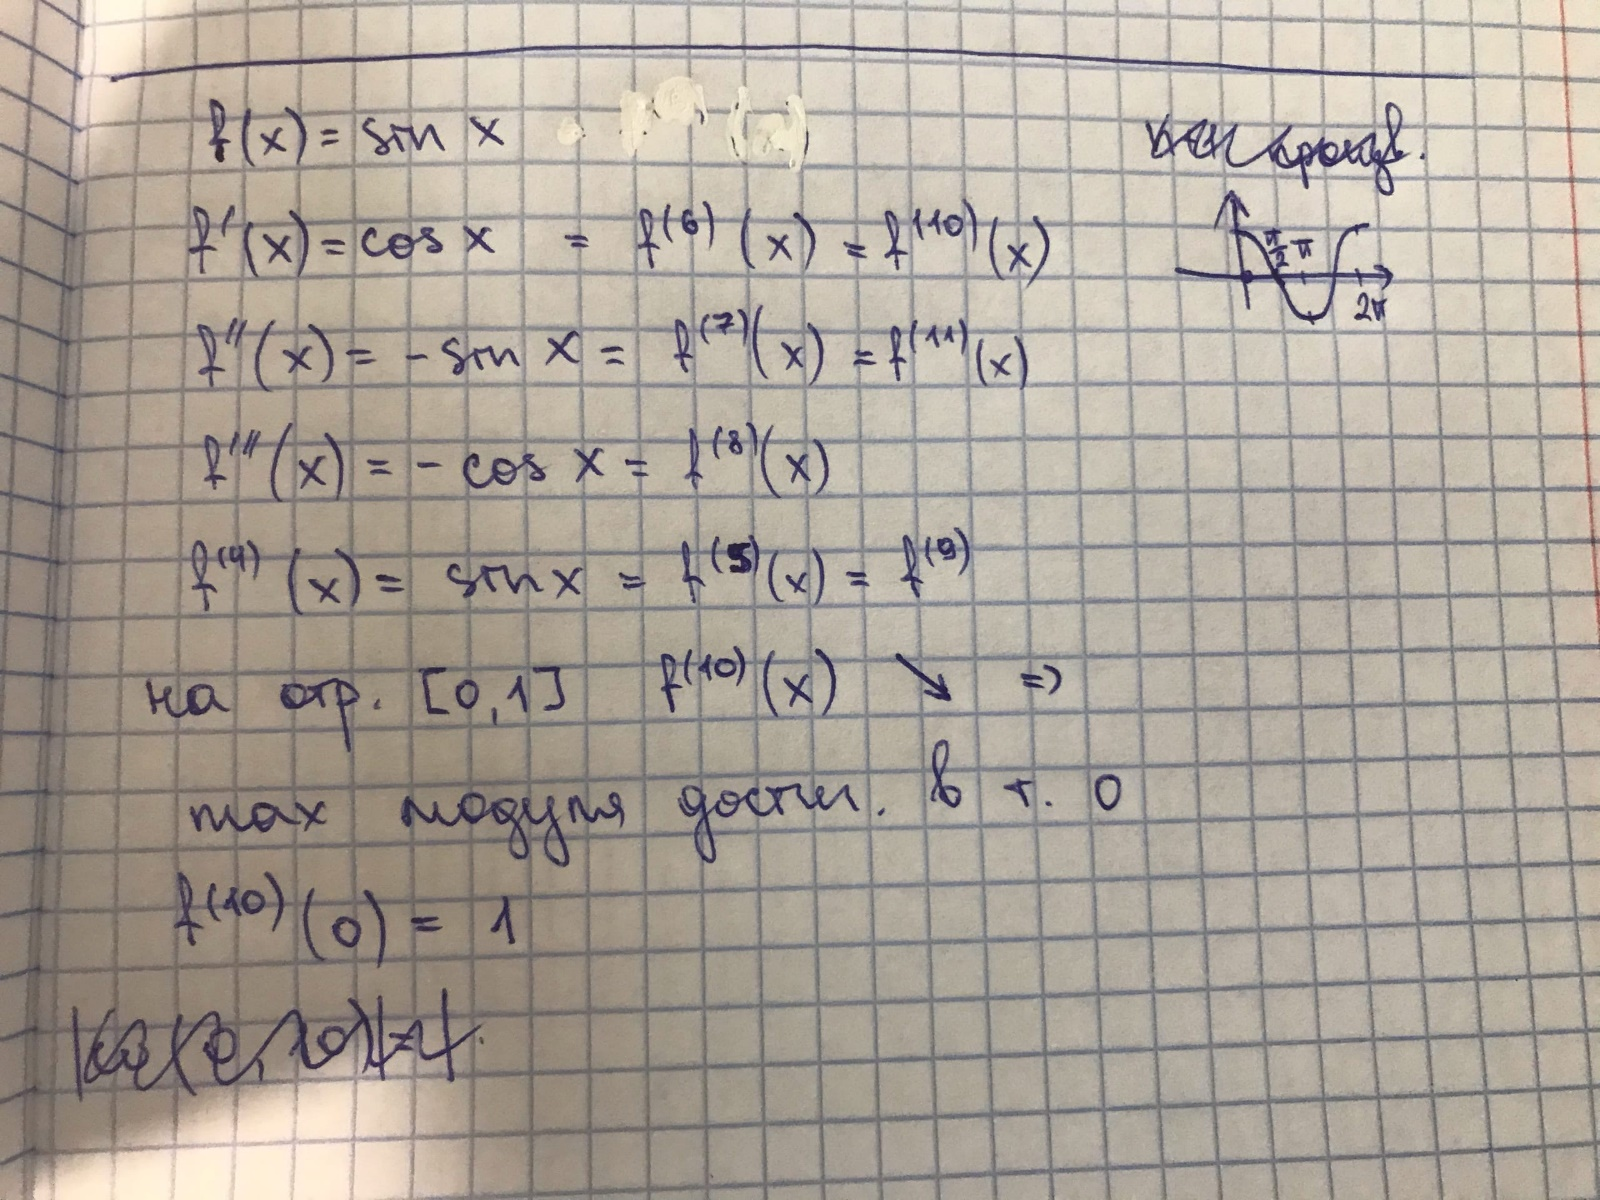 f(x) = sin x
f'(x) = cos x = f⁽⁶⁾(x) = f⁽¹⁰⁾(x)
f''(x) = - sin x = f⁽⁷⁾(x) = f⁽¹¹⁾(x)
f'''(x) = - cos x = f⁽⁸⁾(x)
f⁽⁴⁾(x) = sin x = f⁽⁵⁾(x) = f⁽⁹⁾
π/2 π
2π
на отр. [0,1] f⁽¹⁰⁾(x) ↘ =>
max модуля дости. в т. 0
f⁽¹⁰⁾(0) = 1